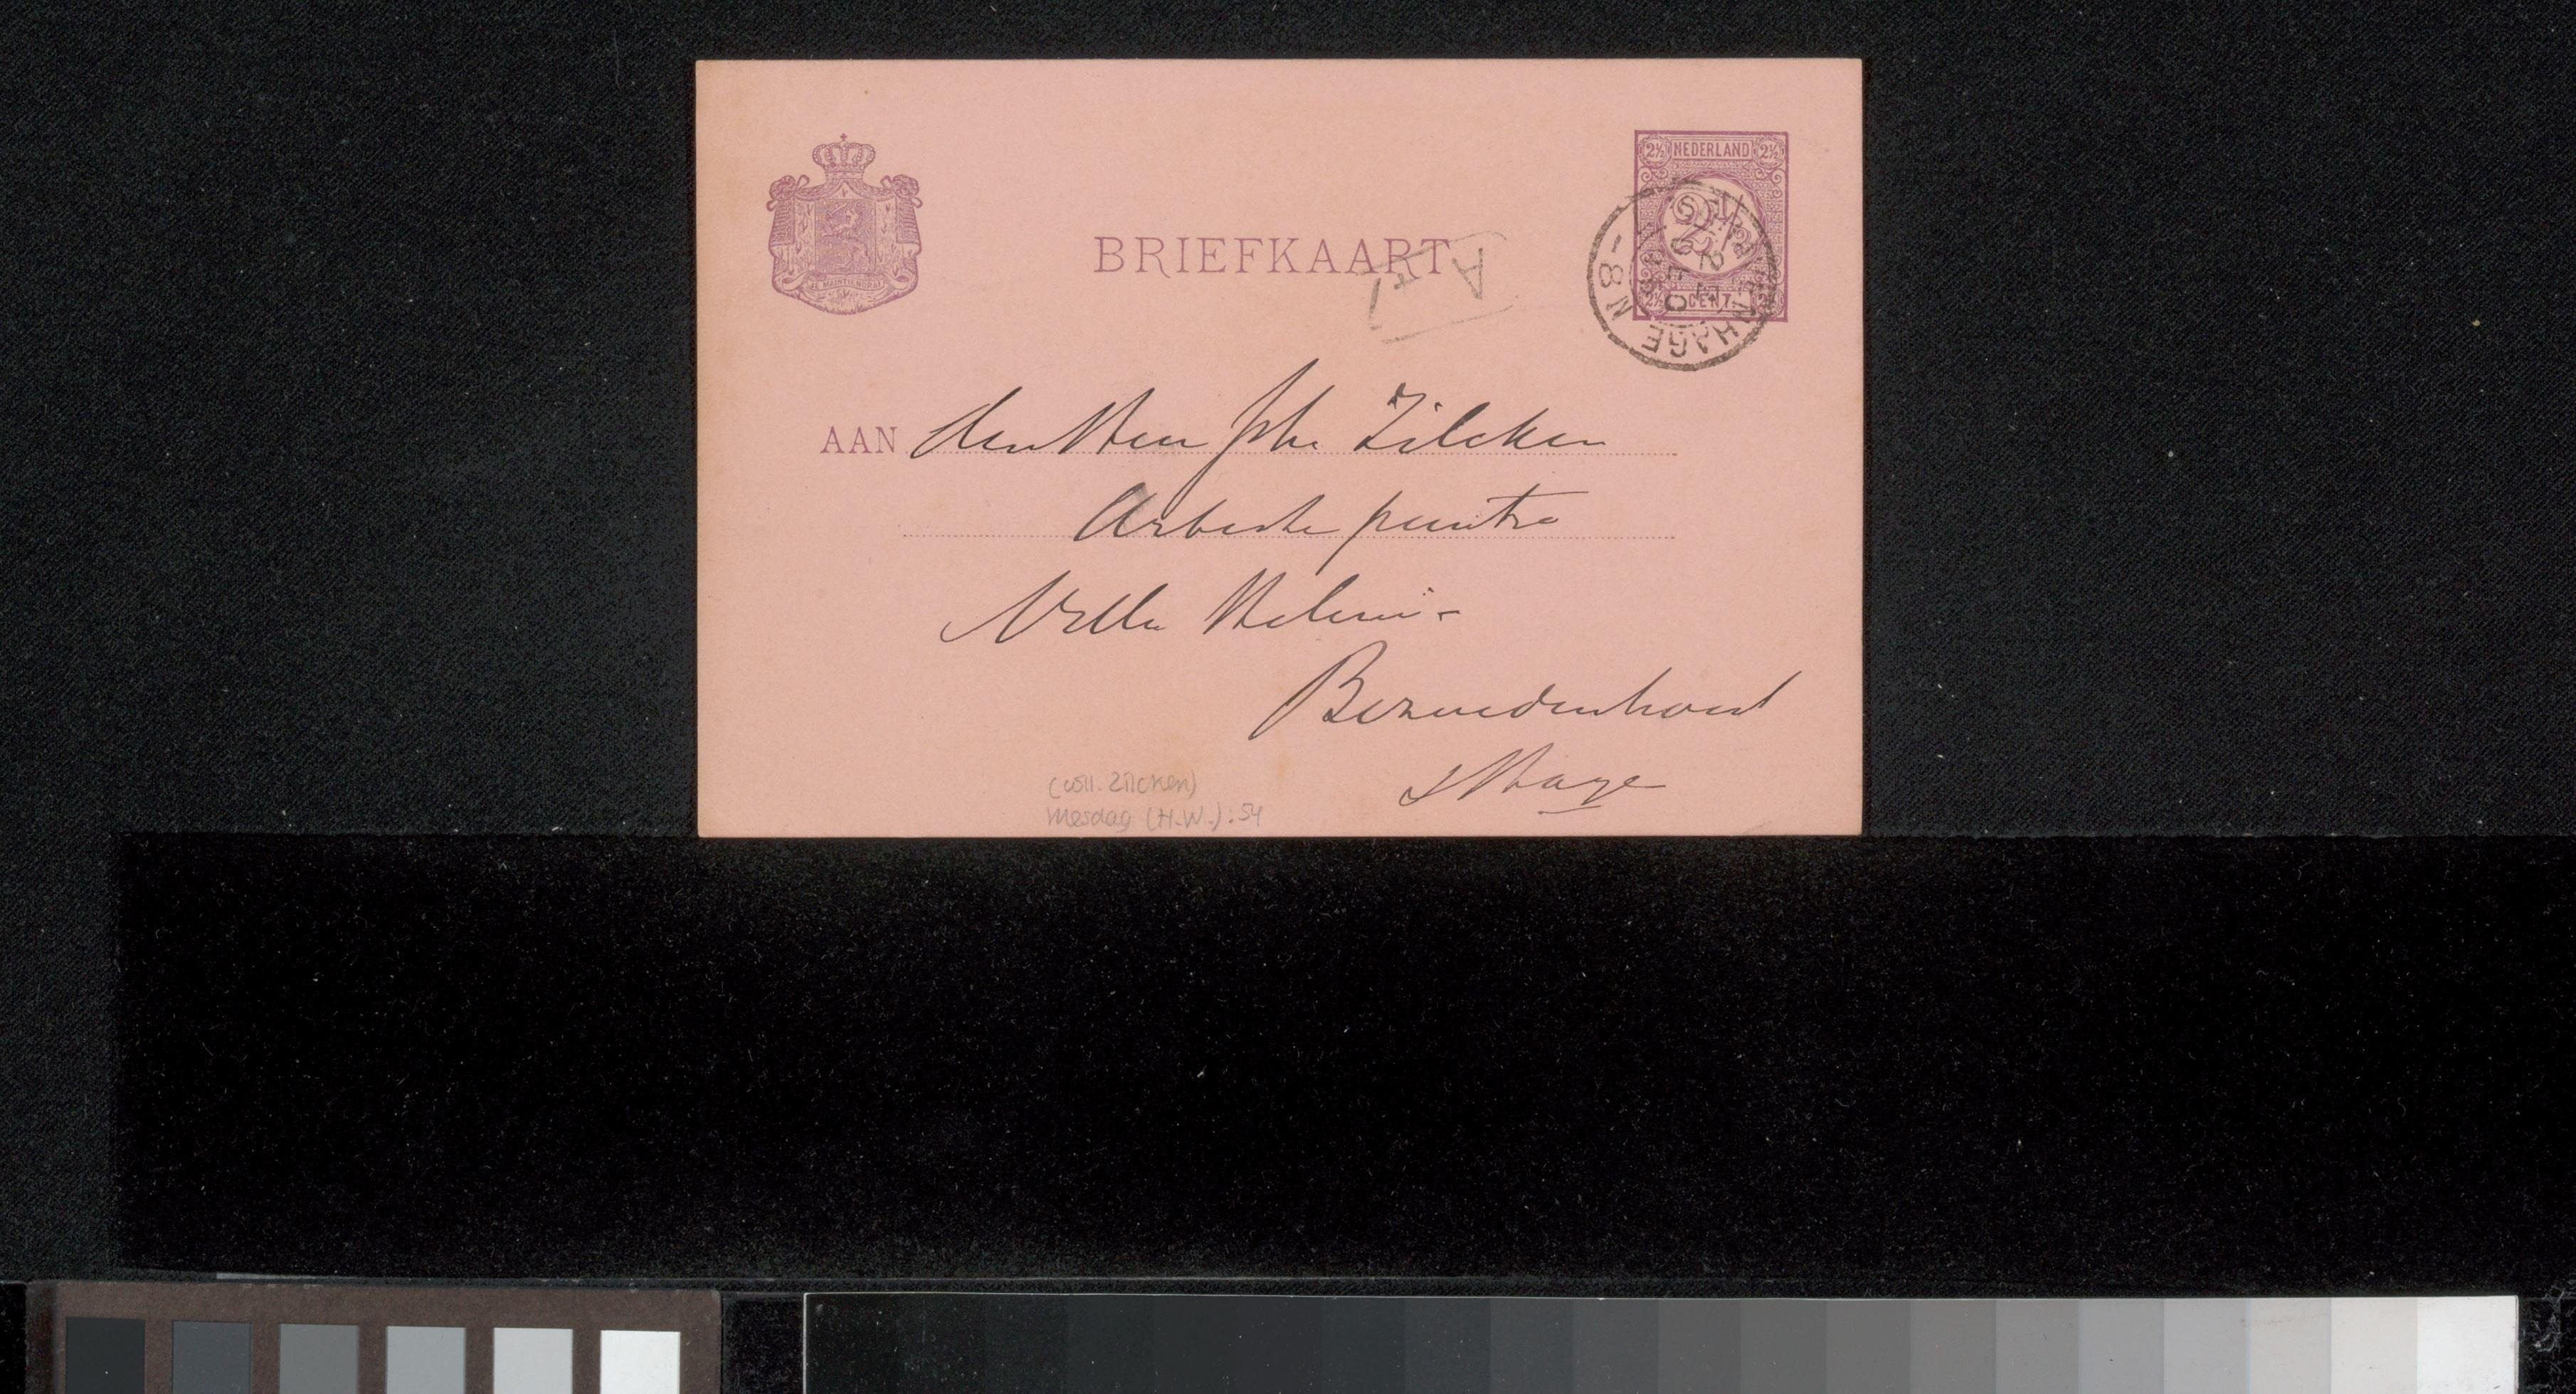 JE MAINTIENDRAI
BRIEFKAART
2½ NEDERLAND 2½
2½
2½ CENT
'S GRAVENHAGE
2 DEC
8 N
A
AAN den Heer Ph. Zilcken
Artiste peintre
Villa Helene
Bezuidenhout
s Hage
(coll. Zilcken)
Mesdag (H.W.): 54